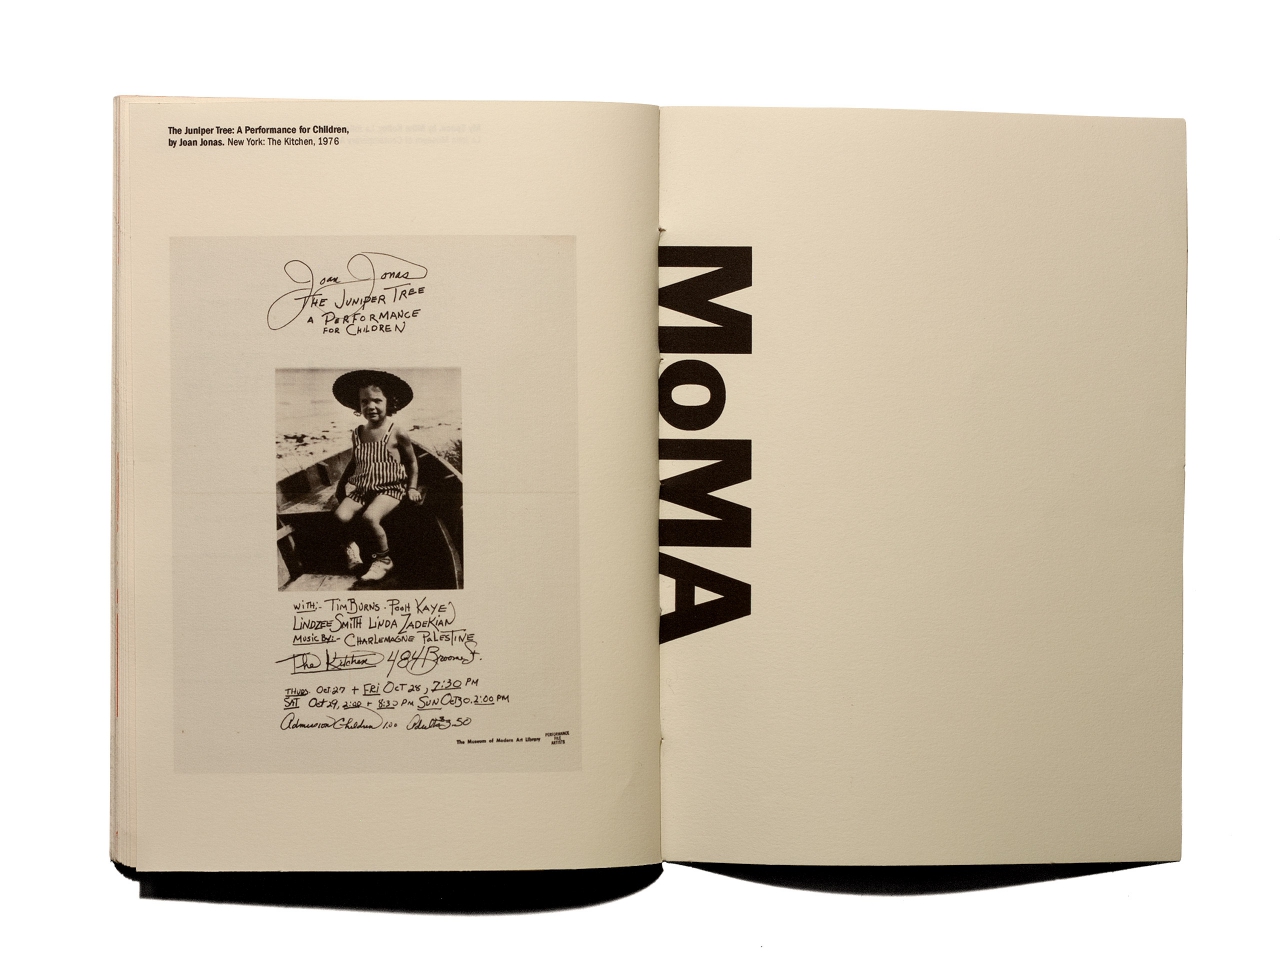 The Juniper Tree: A Performance for Children,
by Joan Jonas. New York: The Kitchen, 1976
Joan Jonas
THE JUNIPER TREE
A PERFORMANCE
FOR CHILDREN
WITH:- TIM BURNS - POOH KAYE
LINDZEE SMITH LINDA ZADEKIAN
MUSIC BY:- CHARLEMAGNE PALESTINE
The Kitchen 484 Broome St.
THURS. Oct 27 + FRI Oct 28, 7:30 PM
SAT Oct 29, 2:00 + 8:30 PM SUN Oct 30, 2:00 PM
Admission Children 1.00 Adults $3.50
The Museum of Modern Art Library
PERFORMANCE
FILE
ARTISTS
MoMA